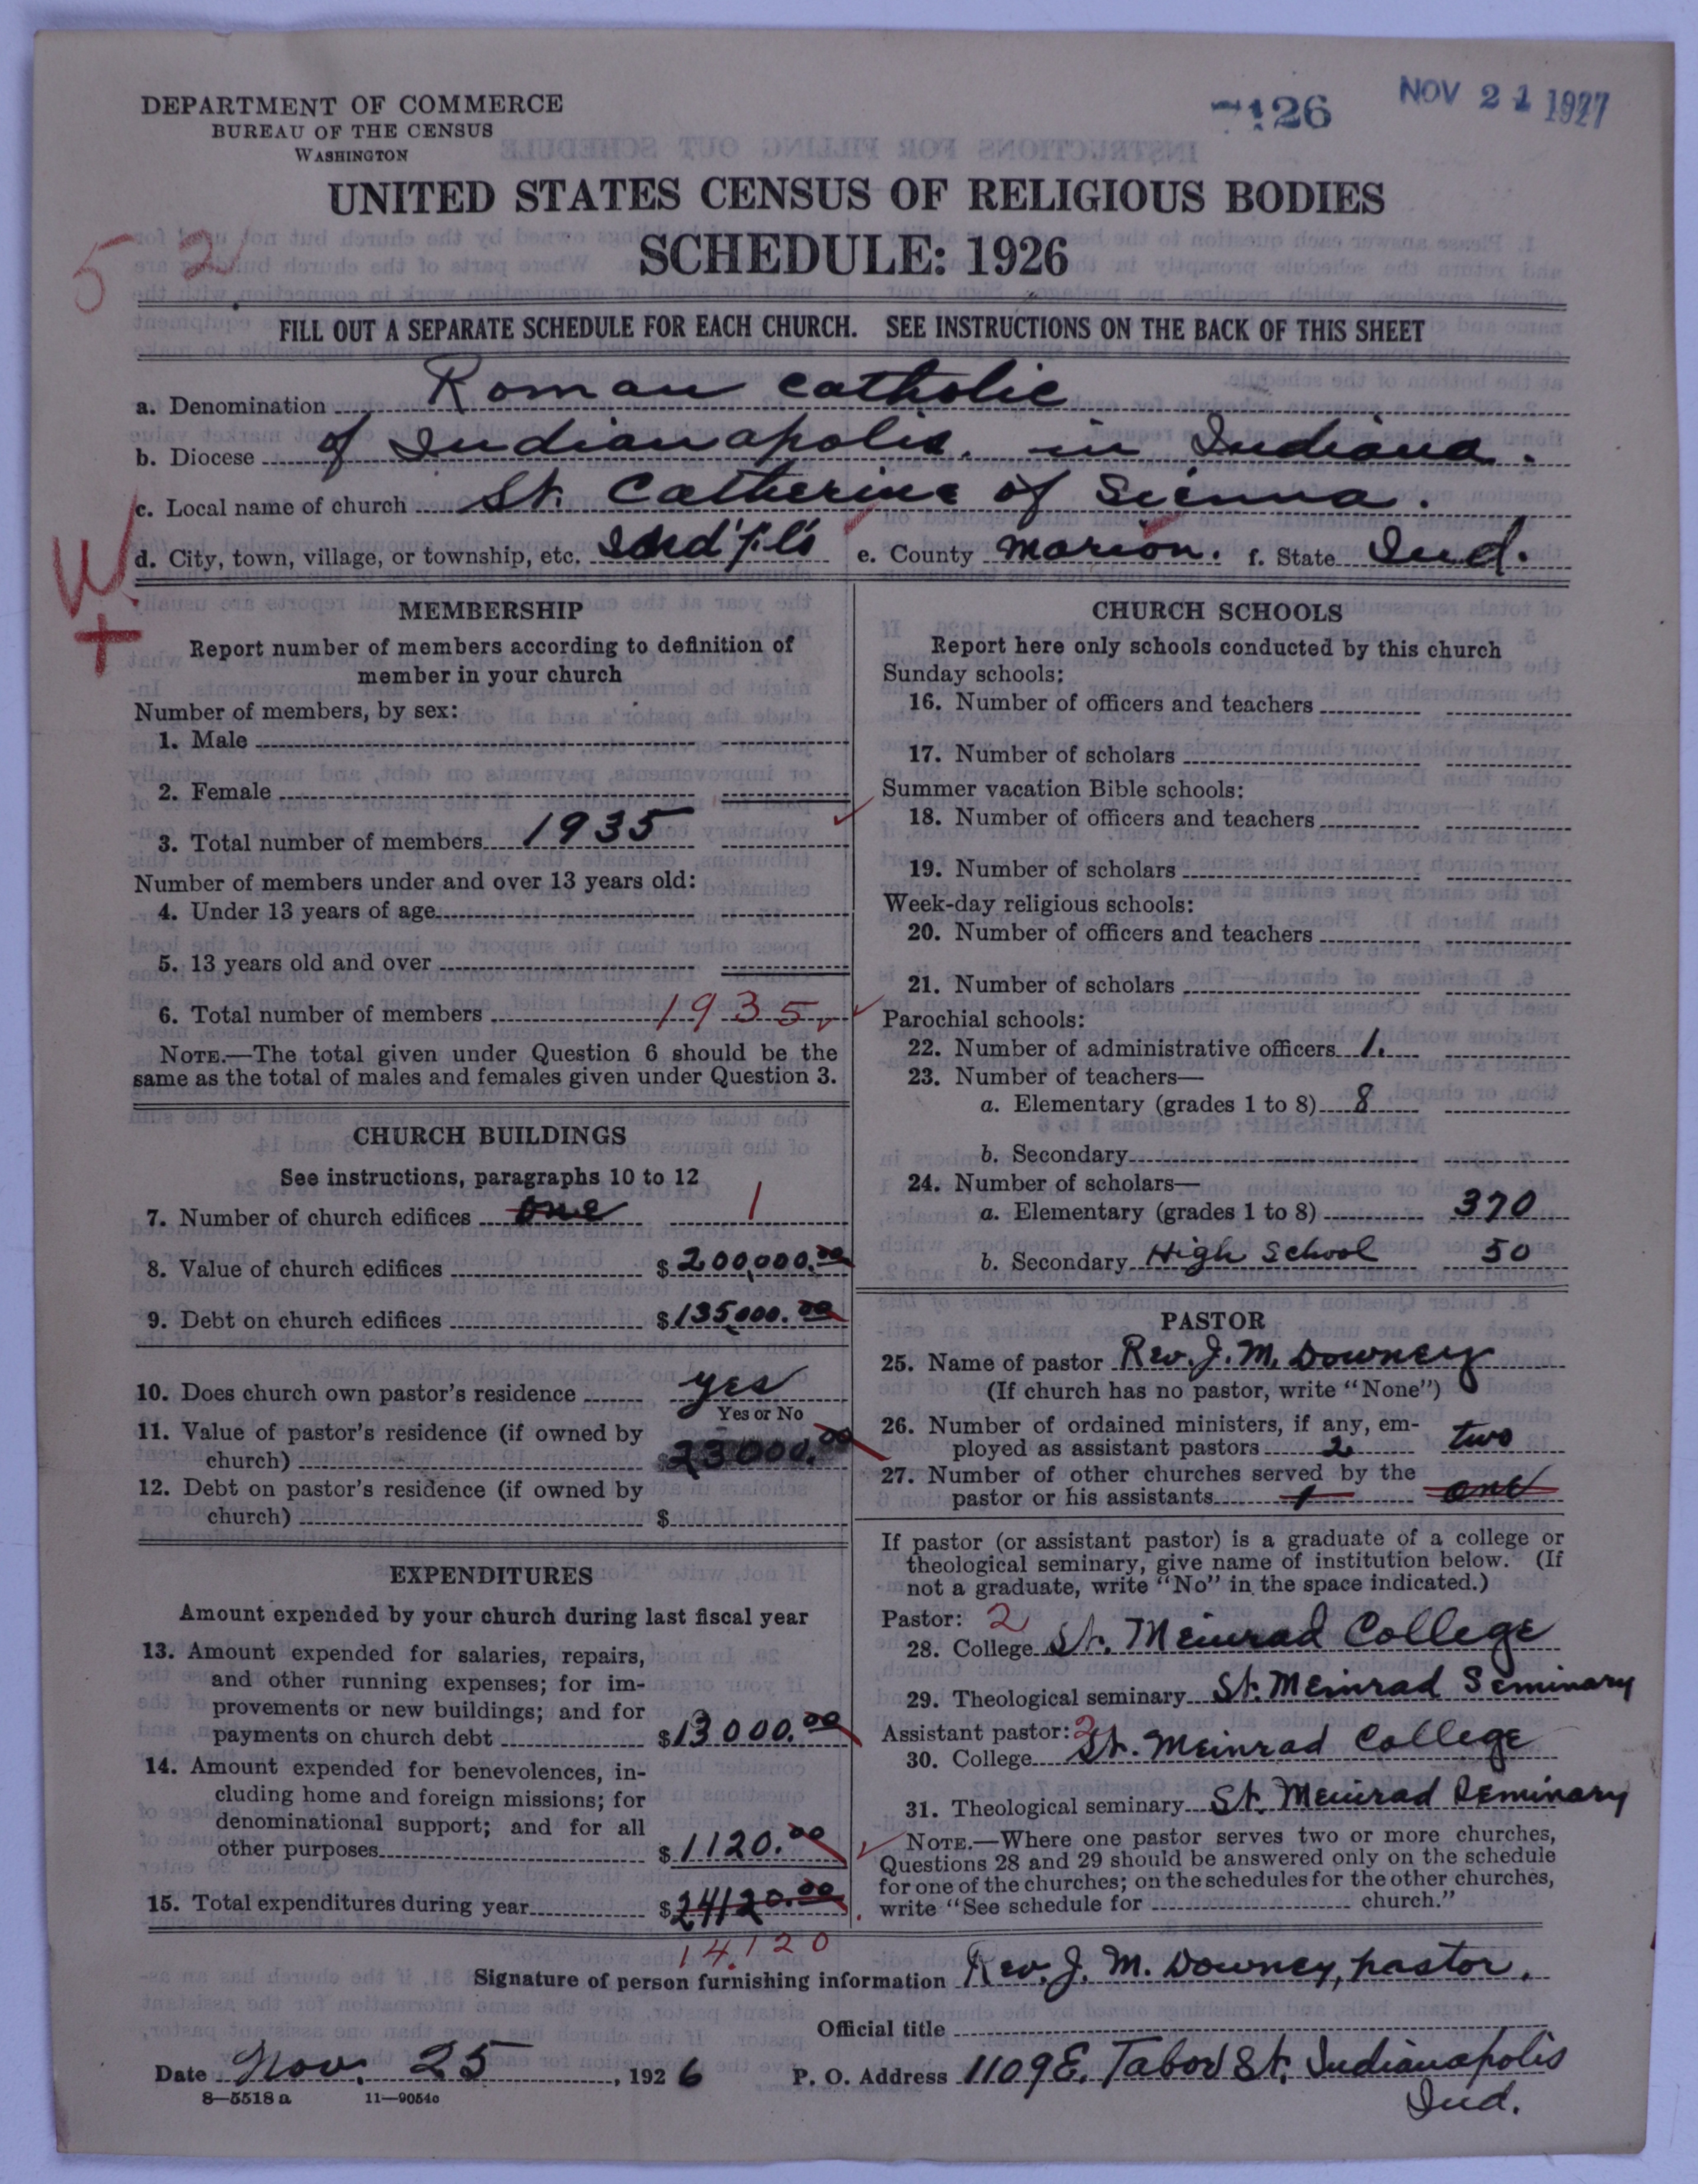 DEPARTMENT OF COMMERCE
BUREAU OF THE CENSUS
WASHINGTON
7126
NOV 21 1927
UNITED STATES CENSUS OF RELIGIOUS BODIES
SCHEDULE: 1926
5 2
FILL OUT A SEPARATE SCHEDULE FOR EACH CHURCH. SEE INSTRUCTIONS ON THE BACK OF THIS SHEET
a. Denomination Roman Catholic
b. Diocese of Indianapolis, in Indiana.
c. Local name of church St. Catherine of Sienna.
d. City, town, village, or township, etc. Ind'pl's e. County Marion. f. State Ind.
W
+
MEMBERSHIP
Report number of members according to definition of
member in your church
Number of members, by sex:
1. Male
2. Female
3. Total number of members 1935
Number of members under and over 13 years old:
4. Under 13 years of age
5. 13 years old and over
6. Total number of members 1935
NOTE.—The total given under Question 6 should be the
same as the total of males and females given under Question 3.
CHURCH BUILDINGS
See instructions, paragraphs 10 to 12
7. Number of church edifices one 1
8. Value of church edifices $200,000.00
9. Debt on church edifices $135,000.00
10. Does church own pastor's residence yes
Yes or No
11. Value of pastor's residence (if owned by
church) 23000.00
12. Debt on pastor's residence (if owned by
church) $
EXPENDITURES
Amount expended by your church during last fiscal year
13. Amount expended for salaries, repairs,
and other running expenses; for im-
provements or new buildings; and for
payments on church debt $13000.00
14. Amount expended for benevolences, in-
cluding home and foreign missions; for
denominational support; and for all
other purposes $1120.00
15. Total expenditures during year $24120.00
14120
CHURCH SCHOOLS
Report here only schools conducted by this church
Sunday schools:
16. Number of officers and teachers
17. Number of scholars
Summer vacation Bible schools:
18. Number of officers and teachers
19. Number of scholars
Week-day religious schools:
20. Number of officers and teachers
21. Number of scholars
Parochial schools:
22. Number of administrative officers 1.
23. Number of teachers—
a. Elementary (grades 1 to 8) 8
b. Secondary
24. Number of scholars—
a. Elementary (grades 1 to 8) 370
b. Secondary High School 50
PASTOR
25. Name of pastor Rev. J. M. Downey
(If church has no pastor, write "None")
26. Number of ordained ministers, if any, em-
ployed as assistant pastors 2 two
27. Number of other churches served by the
pastor or his assistants 1 one
If pastor (or assistant pastor) is a graduate of a college or
theological seminary, give name of institution below. (If
not a graduate, write "No" in the space indicated.)
Pastor: 2
28. College St. Meinrad College
29. Theological seminary St. Meinrad Seminary
Assistant pastor: 2
30. College St. Meinrad College
31. Theological seminary St. Meinrad Seminary
NOTE.—Where one pastor serves two or more churches,
Questions 28 and 29 should be answered only on the schedule
for one of the churches; on the schedules for the other churches,
write "See schedule for church."
Signature of person furnishing information Rev. J. M. Downey, pastor.
Official title
Date Nov. 25, 1926 P. O. Address 1109 E. Tabor St. Indianapolis
Ind.
8—5518 a 11—9054c